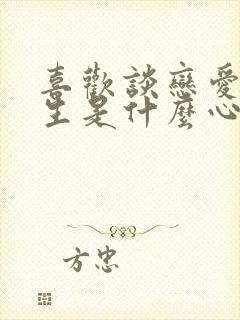 喜歡談戀愛
生是什麼心
方忠